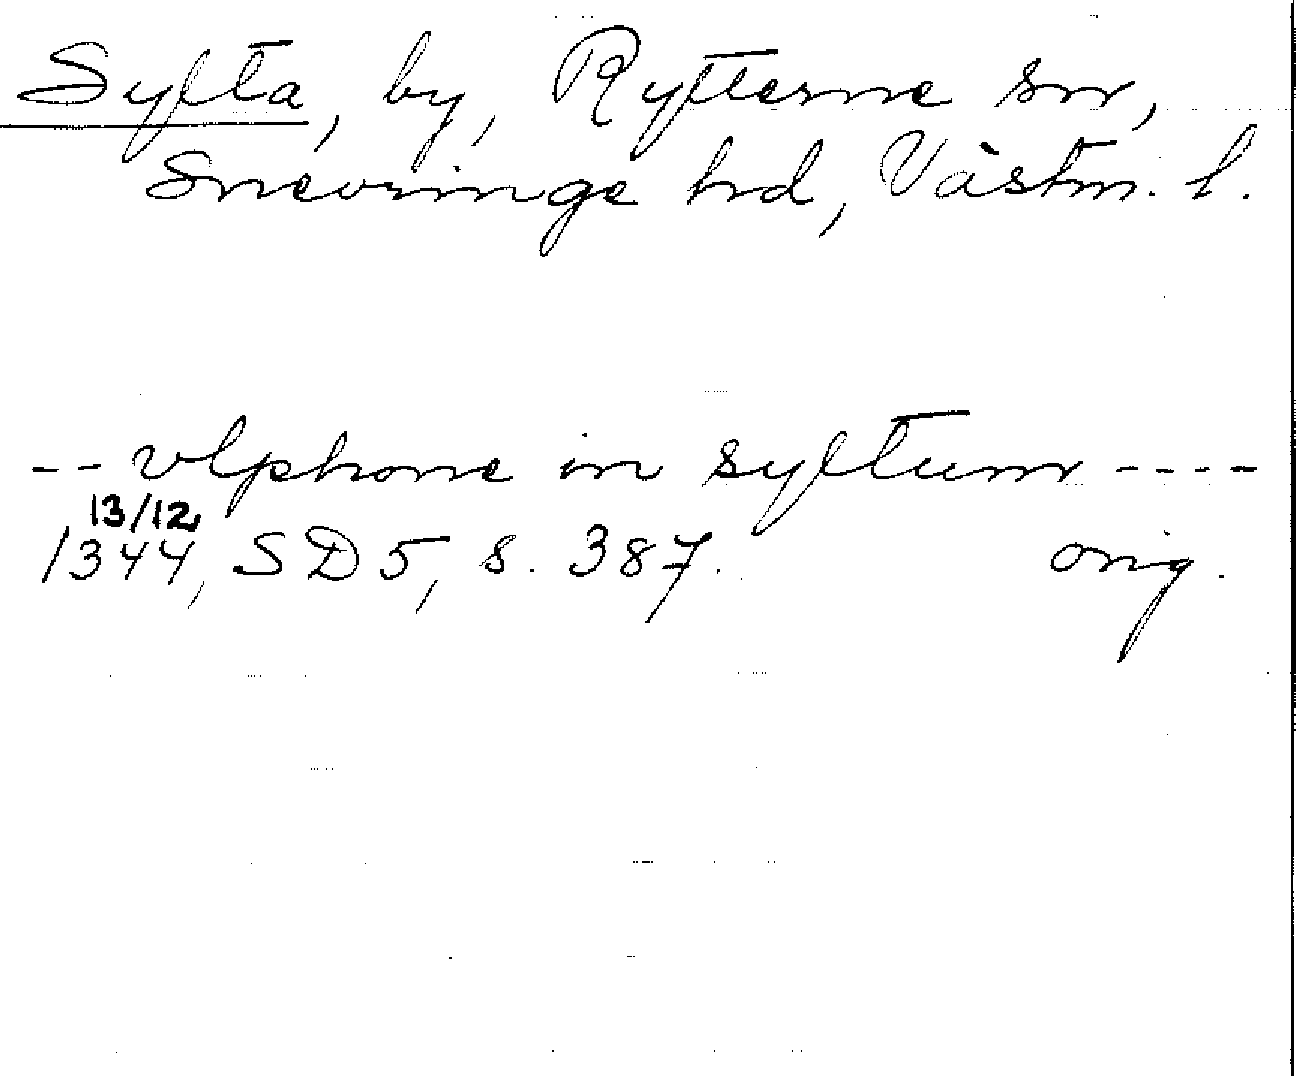 Sylta, by, Rytterne sn,
Snevringe hd, Västm. l.
-- vlphone in syltum ----
13/12
1344, SD 5, s. 387. orig.